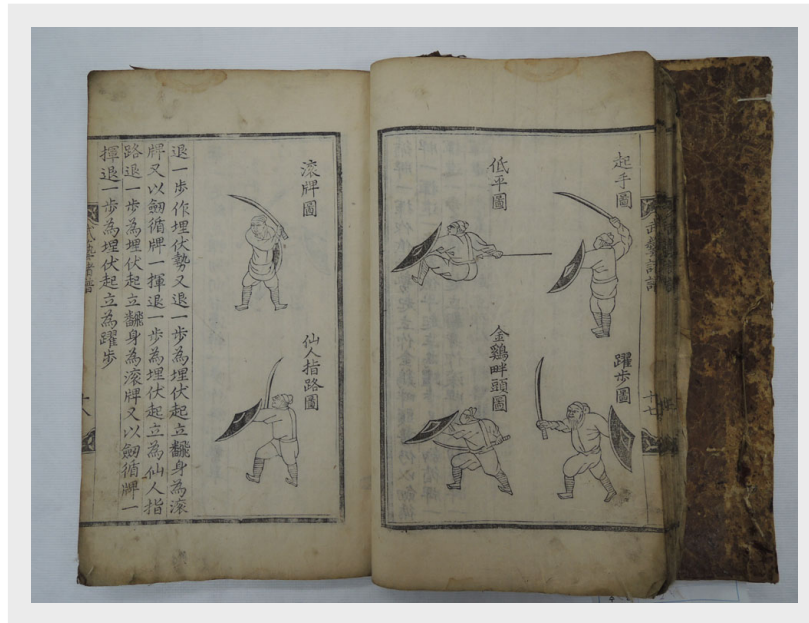 十七
起手圖
躍歩圖
低平圖
金鷄畔頭圖
滾牌圖
仙人指路圖
退一歩作埋伏勢又退一歩為埋伏起立飜身為滾
牌又以劒循牌一揮退一歩為埋伏起立為仙人指
路退一歩為埋伏起立飜身為滾牌又以劒循牌一
揮退一歩為埋伏起立為躍歩